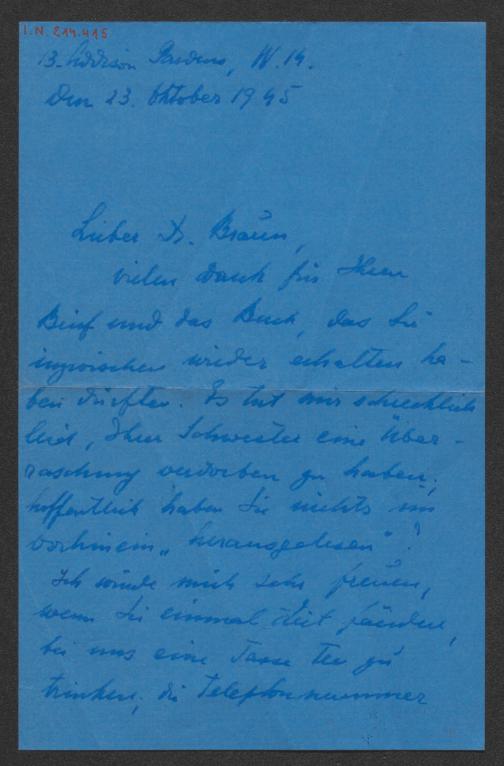 I.N. 214.415
13. Addison Gardens, W. 14.
Den 23. Oktober 1945
Lieber Dr. Braun,
vielen Dank für Ihren
Brief und das Buch, das Sie
inzwischen wieder erhalten ha-
ben dürften. Es tut mir schrecklich
leid, Ihrer Schwester eine Über-
raschung verdorben zu haben;
hoffentlich haben Sie nichts im
vorhinein „herausgelesen"?
Ich würde mich sehr freuen,
wenn Sie einmal Zeit fänden,
bei uns eine Tasse Tee zu
trinken; die Telephonnummer